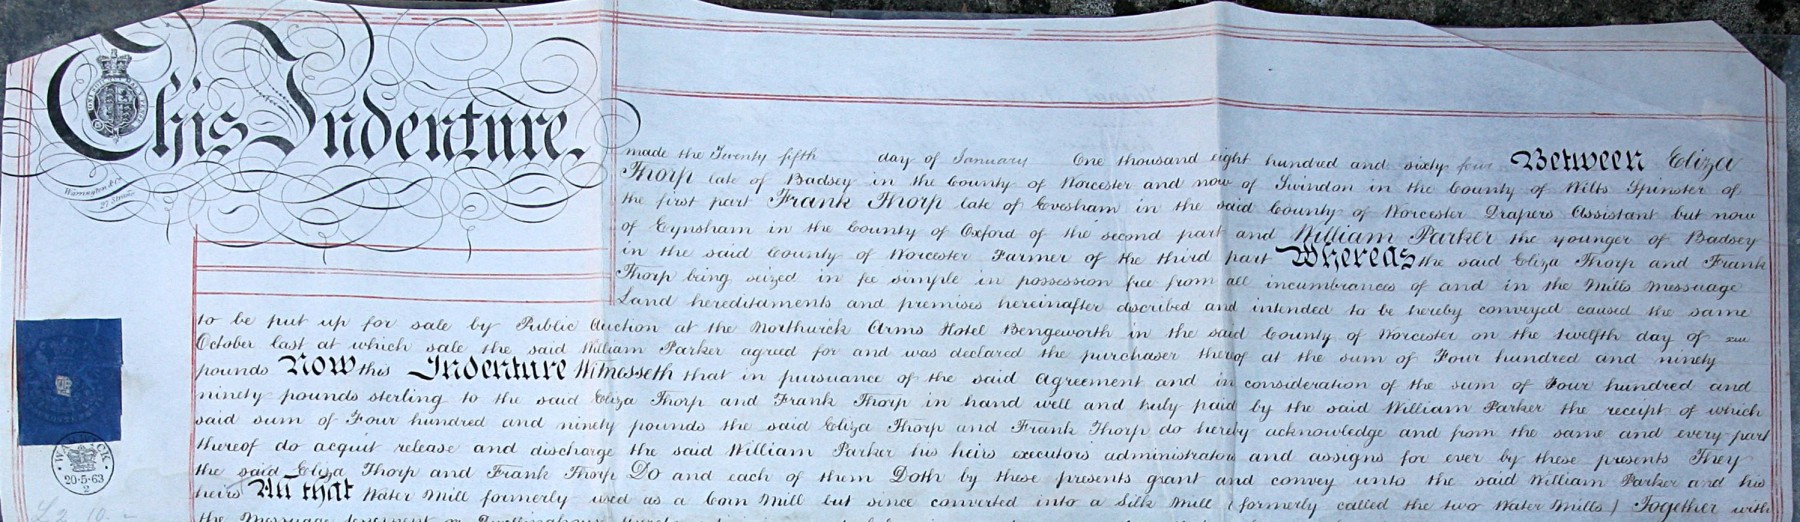 This Indenture.
Warrington & Co
27 Strand
made the Twenty fifth day of January One thousand eight hundred and sixty four Between Eliza
Thorp late of Badsey in the County of Worcester and now of Swindon in the County of Wilts Spinster of
the first part Frank Thorp late of Evesham in the said County of Worcester Drapers Assistant but now
of Eynsham in the County of Oxford of the second part and William Parker the younger of Badsey
in the said County of Worcester Farmer of the third part Whereas the said Eliza Thorp and Frank
Thorp being seized in fee simple in possession free from all incumbrances of and in the Mills Messuage
Land hereditaments and premises hereinafter described and intended to be hereby conveyed caused the same
to be put up for sale by Public Auction at the Northwick Arms Hotel Bengeworth in the said County of Worcester on the twelfth day of
October last at which sale the said William Parker agreed for and was declared the purchaser therof at the sum of Four hundred and ninety
pounds Now this Indenture Witnesseth that in pursuance of the said Agreement and in consideration of the sum of Four hundred and
ninety pounds sterling to the said Eliza Thorp and Frank Thorp in hand well and truly paid by the said William Parker the receipt of which
said sum of Four hundred and ninety pounds the said Eliza Thorp and Frank Thorp do hereby acknowledge and from the same and every part
thereof do acquit release and discharge the said William Parker his heirs executors administrators and assigns for ever by these presents They
the said Eliza Thorp and Frank Thorp Do and each of them Doth by these presents grant and convey unto the said William Parker and his
heirs All that Water Mill formerly used as a Corn Mill but since converted into a Silk Mill (formerly called the two Water Mills) Together with
the Messuage tenement or Dwellinghouse
WARWICK
20·5·63
2
£2 10 -